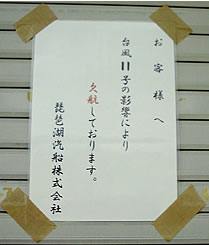 お客様へ
台風11号の影響により
欠航しております。
琵琶湖汽船株式会社